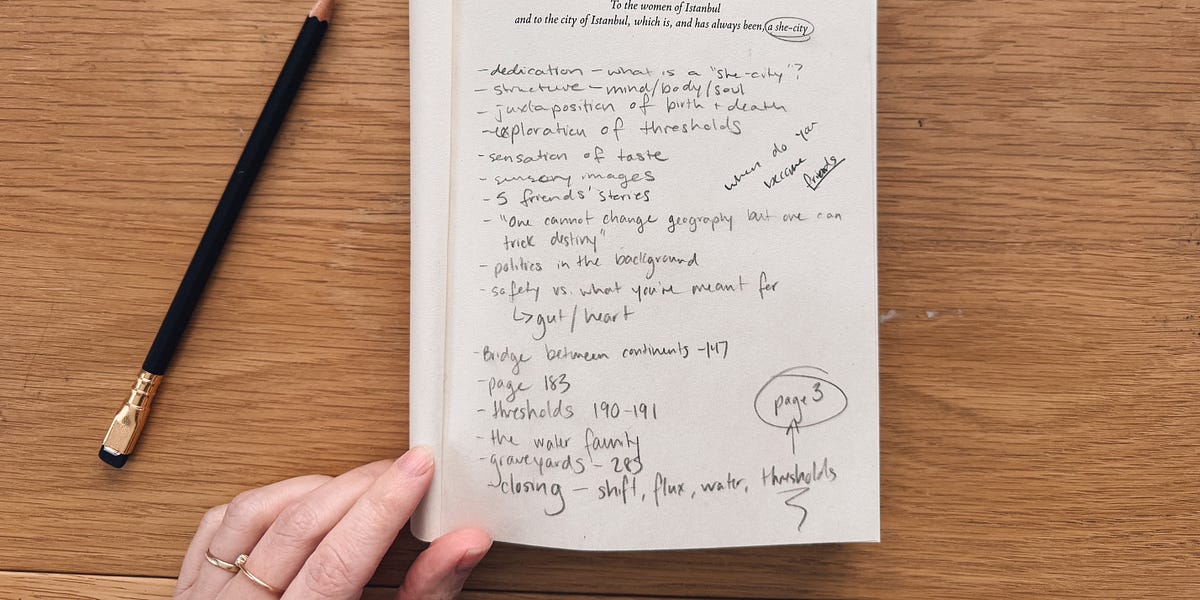 To the women of Istanbul
and to the city of Istanbul, which is, and has always been, a she-city
- dedication - what is a "she-city"?
- structure - mind/body/soul
- juxtaposition of birth + death
- exploration of thresholds
- sensation of taste
- sensory images
- 5 friends' stories
when do you
become
friends
- "One cannot change geography but one can
trick destiny"
- politics in the background
- safety vs. what you're meant for
↳ gut/heart
- Bridge between continents - 147
- page 183
- thresholds 190-191
- the water family
- graveyards - 285
- closing - shift, flux, water, thresholds
page 3